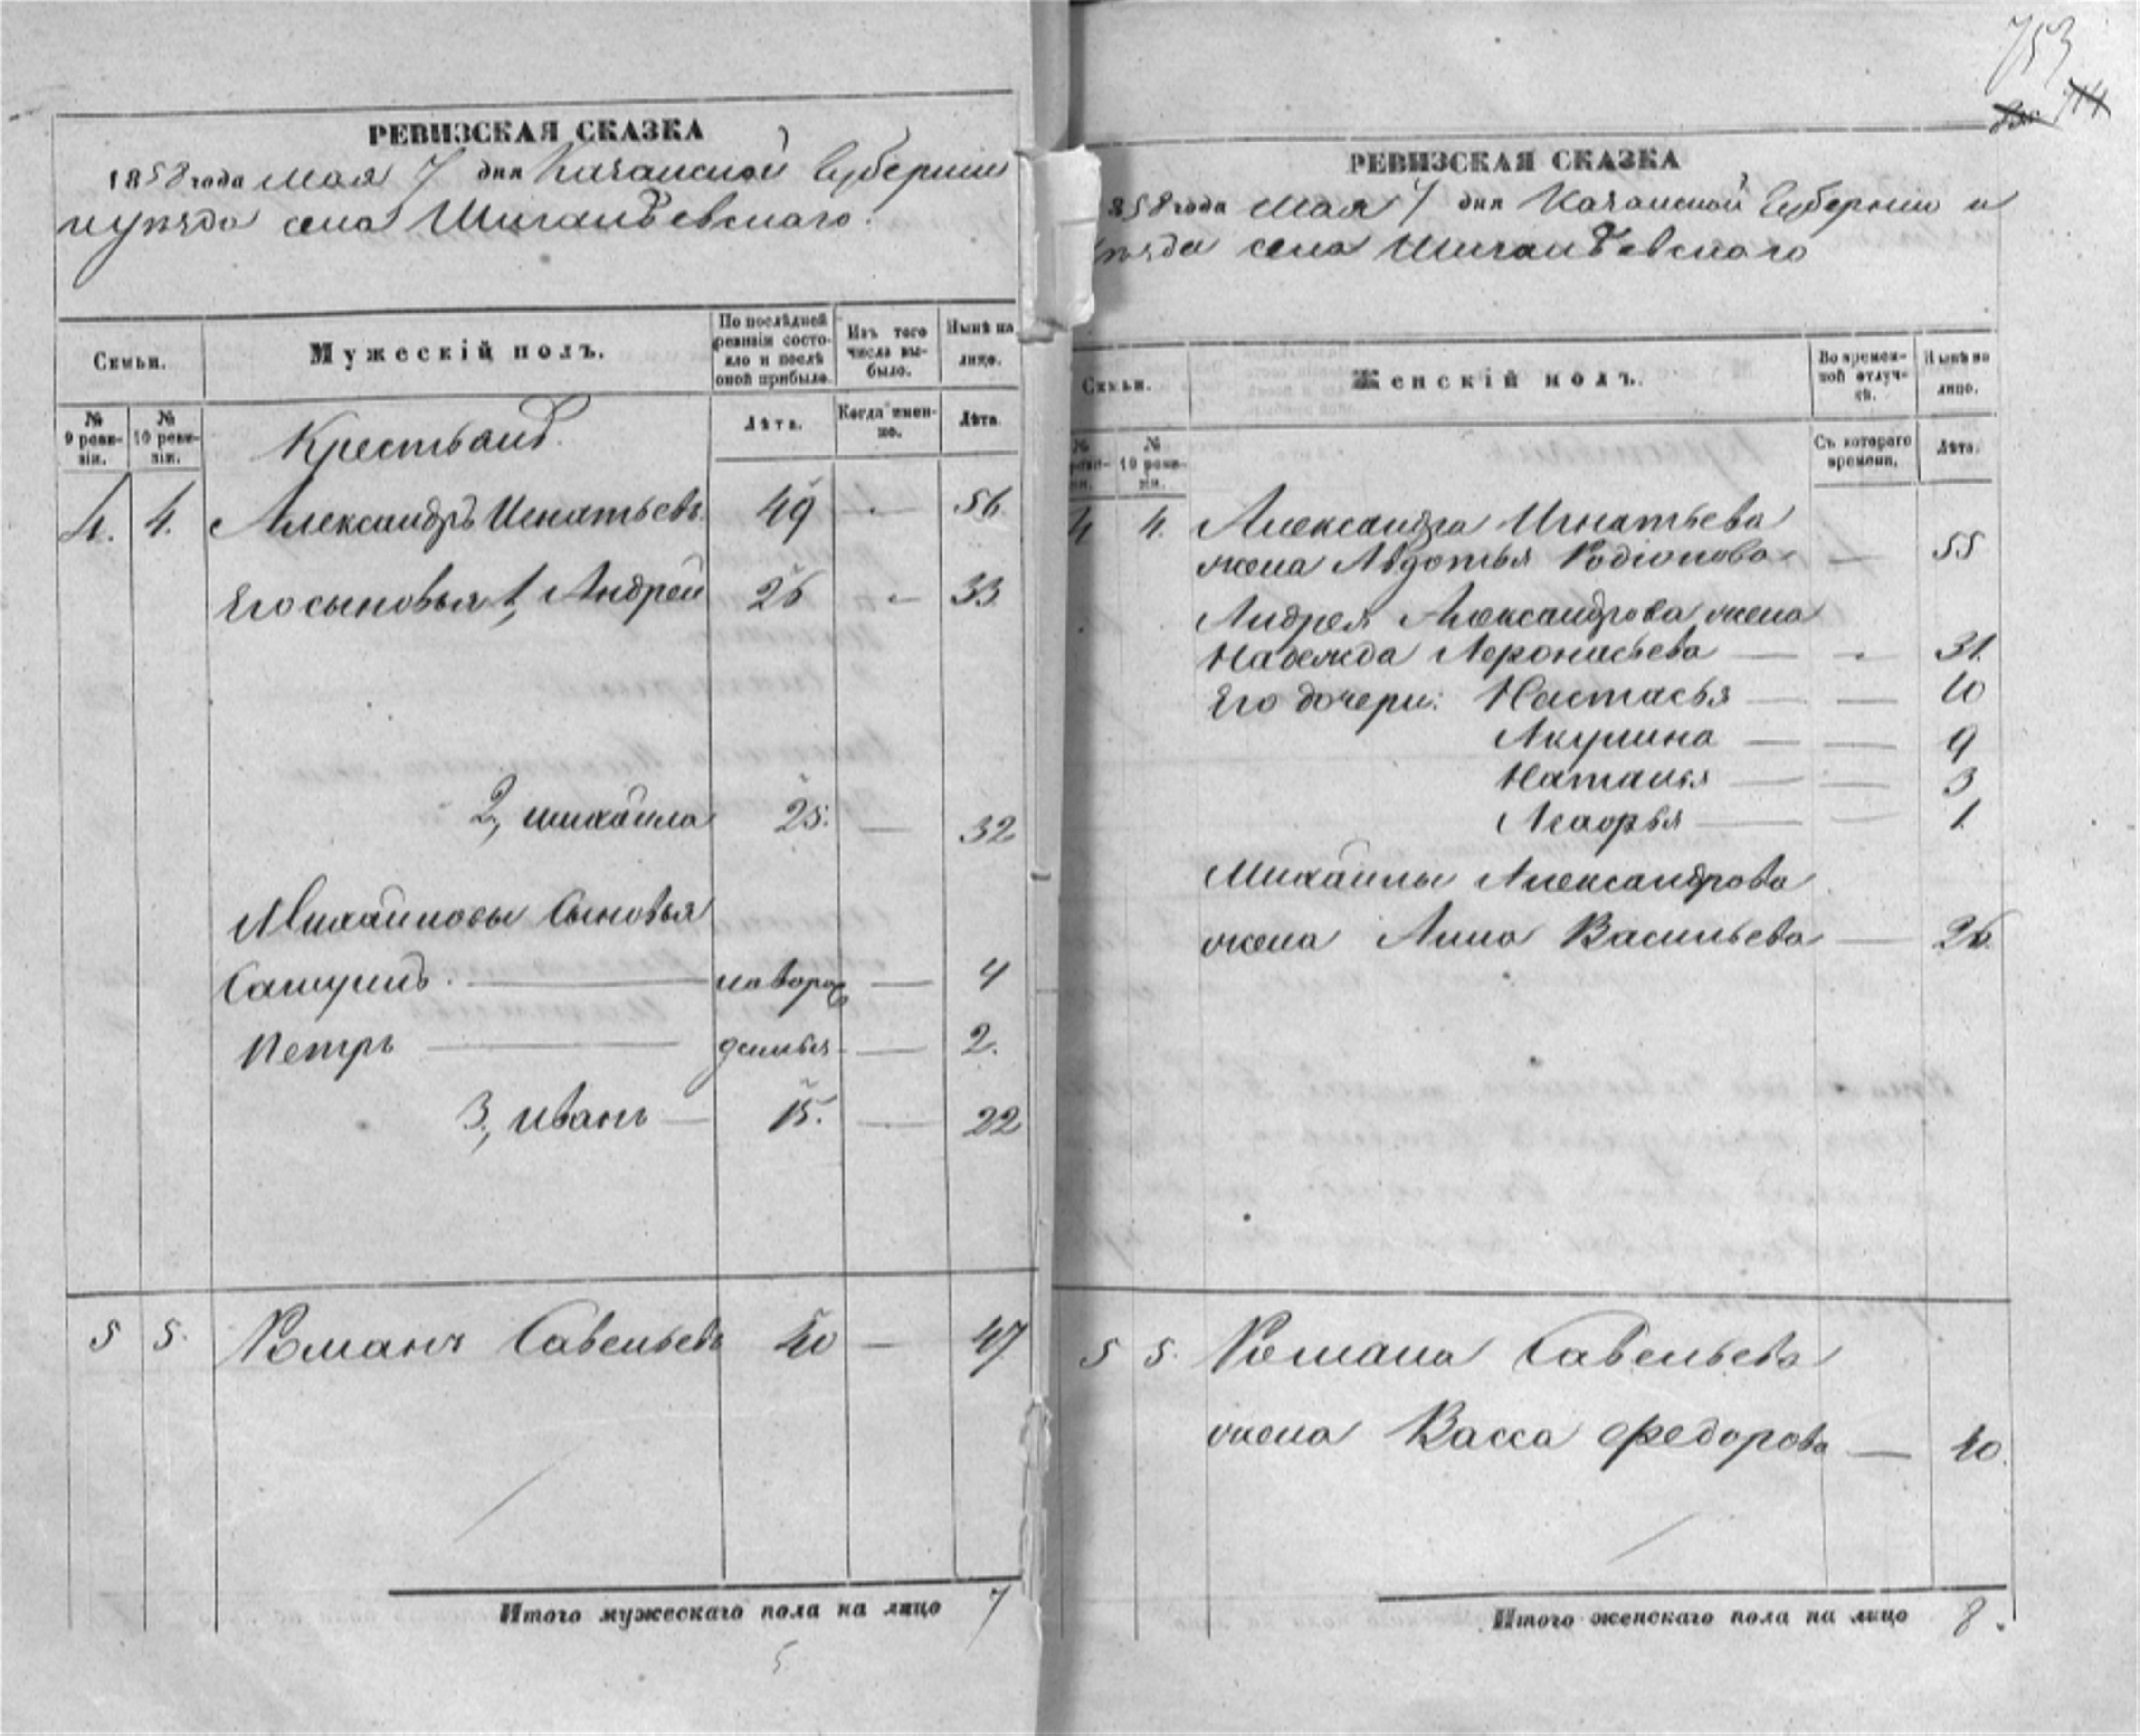 РЕВИЗСКАЯ СКАЗКА
1858 года Мая 7 дня Казанской Губернии
и уѣзда села Шигалѣевскаго.
Семьи.
Мужескій полъ.
По послѣдней ревизіи состояло и послѣ оной прибыло.
Изъ того числа выбыло.
Нынѣ на лицо.
№ 9 ревизіи.
№ 10 ревизіи.
Крестьянъ.
Лѣта.
Когда именно.
Лѣта.
4. 4. Александръ Игнатьевъ 49 — 56
Его сыновья 1, Андрей 26 — 33
2, Михайла 25. — 32
Михайловы Сыновья
— новорож — 4
Петръ — — 2.
3, Иванъ — 15. — 22
5 5. Романъ Савельевъ 40 — 47
Итого мужескаго пола на лицо 7
5
753
714
РЕВИЗСКАЯ СКАЗКА
858 года Мая 7 дня Казанской Губернии и
ѣзда села Шигалѣевскаго
Семьи.
Женскій полъ.
Во временной отлучкѣ.
Нынѣ на лицо.
№
№ 10 ревизіи.
Съ котораго времени.
Лѣта.
4 4. Александра Игнатьева
жена Авдотья Родіонова — 55
Андрея Александрова жена
Надежда Афонасьева — 31.
Его дочери: Настасья — — 10
Акулина — — 9
Наталья — — 3
— — 1.
Михайлы Александрова
жена Анна Васильева — 26.
5 5. Романа Савельева
жена Васса Федорова — 40.
Итого женскаго пола на лицо 8.